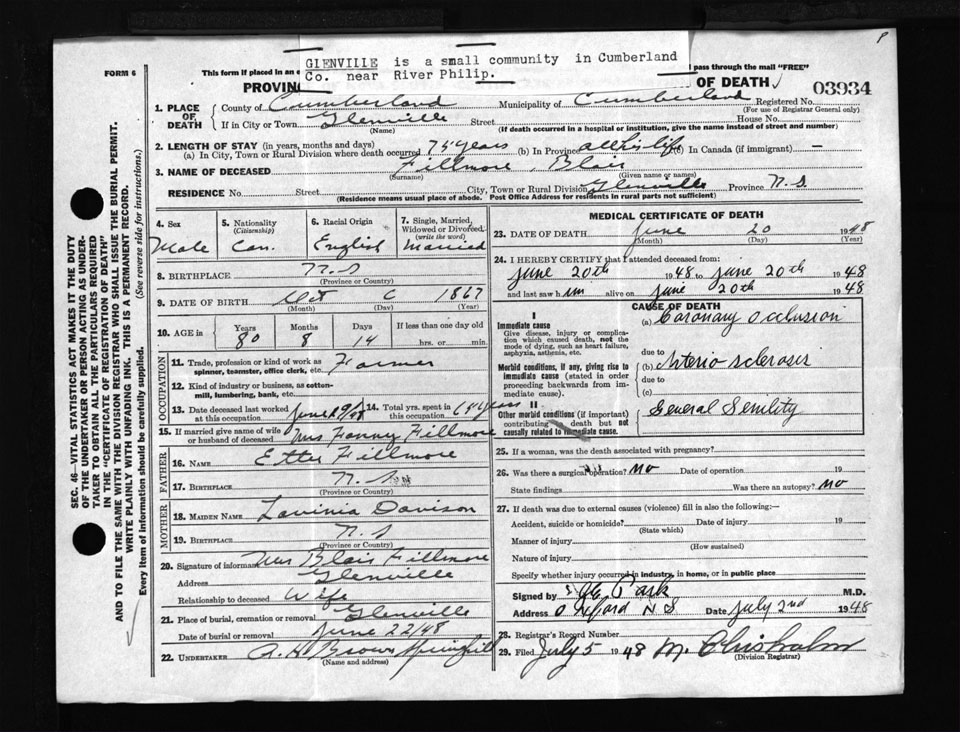 GLENVILLE is a small community in Cumberland
Co. near River Philip.
P
FORM 6
This form if placed in an pass through the mail "FREE"
PROVIN OF DEATH
03934
1. PLACE OF DEATH
County of Cumberland Municipality of Cumberland Registered No.
(For use of Registrar General only)
If in City or Town Glenville Street House No.
(Name) (If death occurred in a hospital or institution, give the name instead of street and number)
2. LENGTH OF STAY (in years, months and days)
(a) In City, Town or Rural Division where death occurred 75 years (b) In Province all his life (c) In Canada (if immigrant) —
3. NAME OF DECEASED Fillmore, Blair
(Surname) (Given name or names)
RESIDENCE No. Street City, Town or Rural Division Glenville Province N.S.
(Residence means usual place of abode. Post Office Address for residents in rural parts not sufficient)
4. Sex Male
5. Nationality (Citizenship) Can.
6. Racial Origin English
7. Single, Married, Widowed or Divorced (write the word) Married
8. BIRTHPLACE N.S
(Province or Country)
9. DATE OF BIRTH Oct 6 1867
(Month) (Day) (Year)
10. AGE in Years Months Days If less than one day old
80 8 14 hrs. or min.
OCCUPATION
11. Trade, profession or kind of work as spinner, teamster, office clerk, etc. Farmer
12. Kind of industry or business, as cotton-mill, lumbering, bank, etc.
13. Date deceased last worked at this occupation June 1948
14. Total yrs. spent in this occupation years
15. If married give name of wife or husband of deceased Mrs Fanny Fillmore
FATHER
16. NAME Fillmore
17. BIRTHPLACE N.S
(Province or Country)
MOTHER
18. MAIDEN NAME Lavinia Davison
19. BIRTHPLACE N.S
(Province or Country)
20. Signature of informant Mrs Blair Fillmore
Address Glenville
Relationship to deceased Wife
21. Place of burial, cremation or removal Glenville
Date of burial or removal June 22/48
22. UNDERTAKER A. H Brown Springhill
(Name and address)
MEDICAL CERTIFICATE OF DEATH
23. DATE OF DEATH June 20 1948
(Month) (Day) (Year)
24. I HEREBY CERTIFY that I attended deceased from:
June 20th 1948 to June 20th 1948
and last saw him alive on June 20th 1948
CAUSE OF DEATH
I
Immediate cause
Give disease, injury or complication which caused death, not the mode of dying, such as heart failure, asphyxia, asthenia, etc.
(a) Coronary Occlusion
due to
Morbid conditions, if any, giving rise to immediate cause (stated in order proceeding backwards from immediate cause).
(b) Arterio sclerosis
due to
(c)
II
Other morbid conditions (if important) contributing to death but not causally related to immediate cause.
General Senility
25. If a woman, was the death associated with pregnancy?
26. Was there a surgical operation? No Date of operation 19
State findings Was there an autopsy? No
27. If death was due to external causes (violence) fill in also the following:—
Accident, suicide or homicide? Date of injury 19
(State which)
Manner of injury
(How sustained)
Nature of injury
Specify whether injury occurred in industry, in home, or in public place
Signed by Park M.D.
Address Oxford N S Date July 2nd 1948
28. Registrar's Record Number
29. Filed July 5 1948 M. Chisholm
(Division Registrar)
SEC. 46—VITAL STATISTICS ACT MAKES IT THE DUTY
OF THE UNDERTAKER OR PERSON ACTING AS UNDER-
TAKER TO OBTAIN ALL THE PARTICULARS REQUIRED
IN THE "CERTIFICATE OF REGISTRATION OF DEATH"
AND TO FILE THE SAME WITH THE DIVISION REGISTRAR WHO SHALL ISSUE THE BURIAL PERMIT.
WRITE PLAINLY WITH UNFADING INK. THIS IS A PERMANENT RECORD.
Every item of information should be carefully supplied. (See reverse side for instructions.)